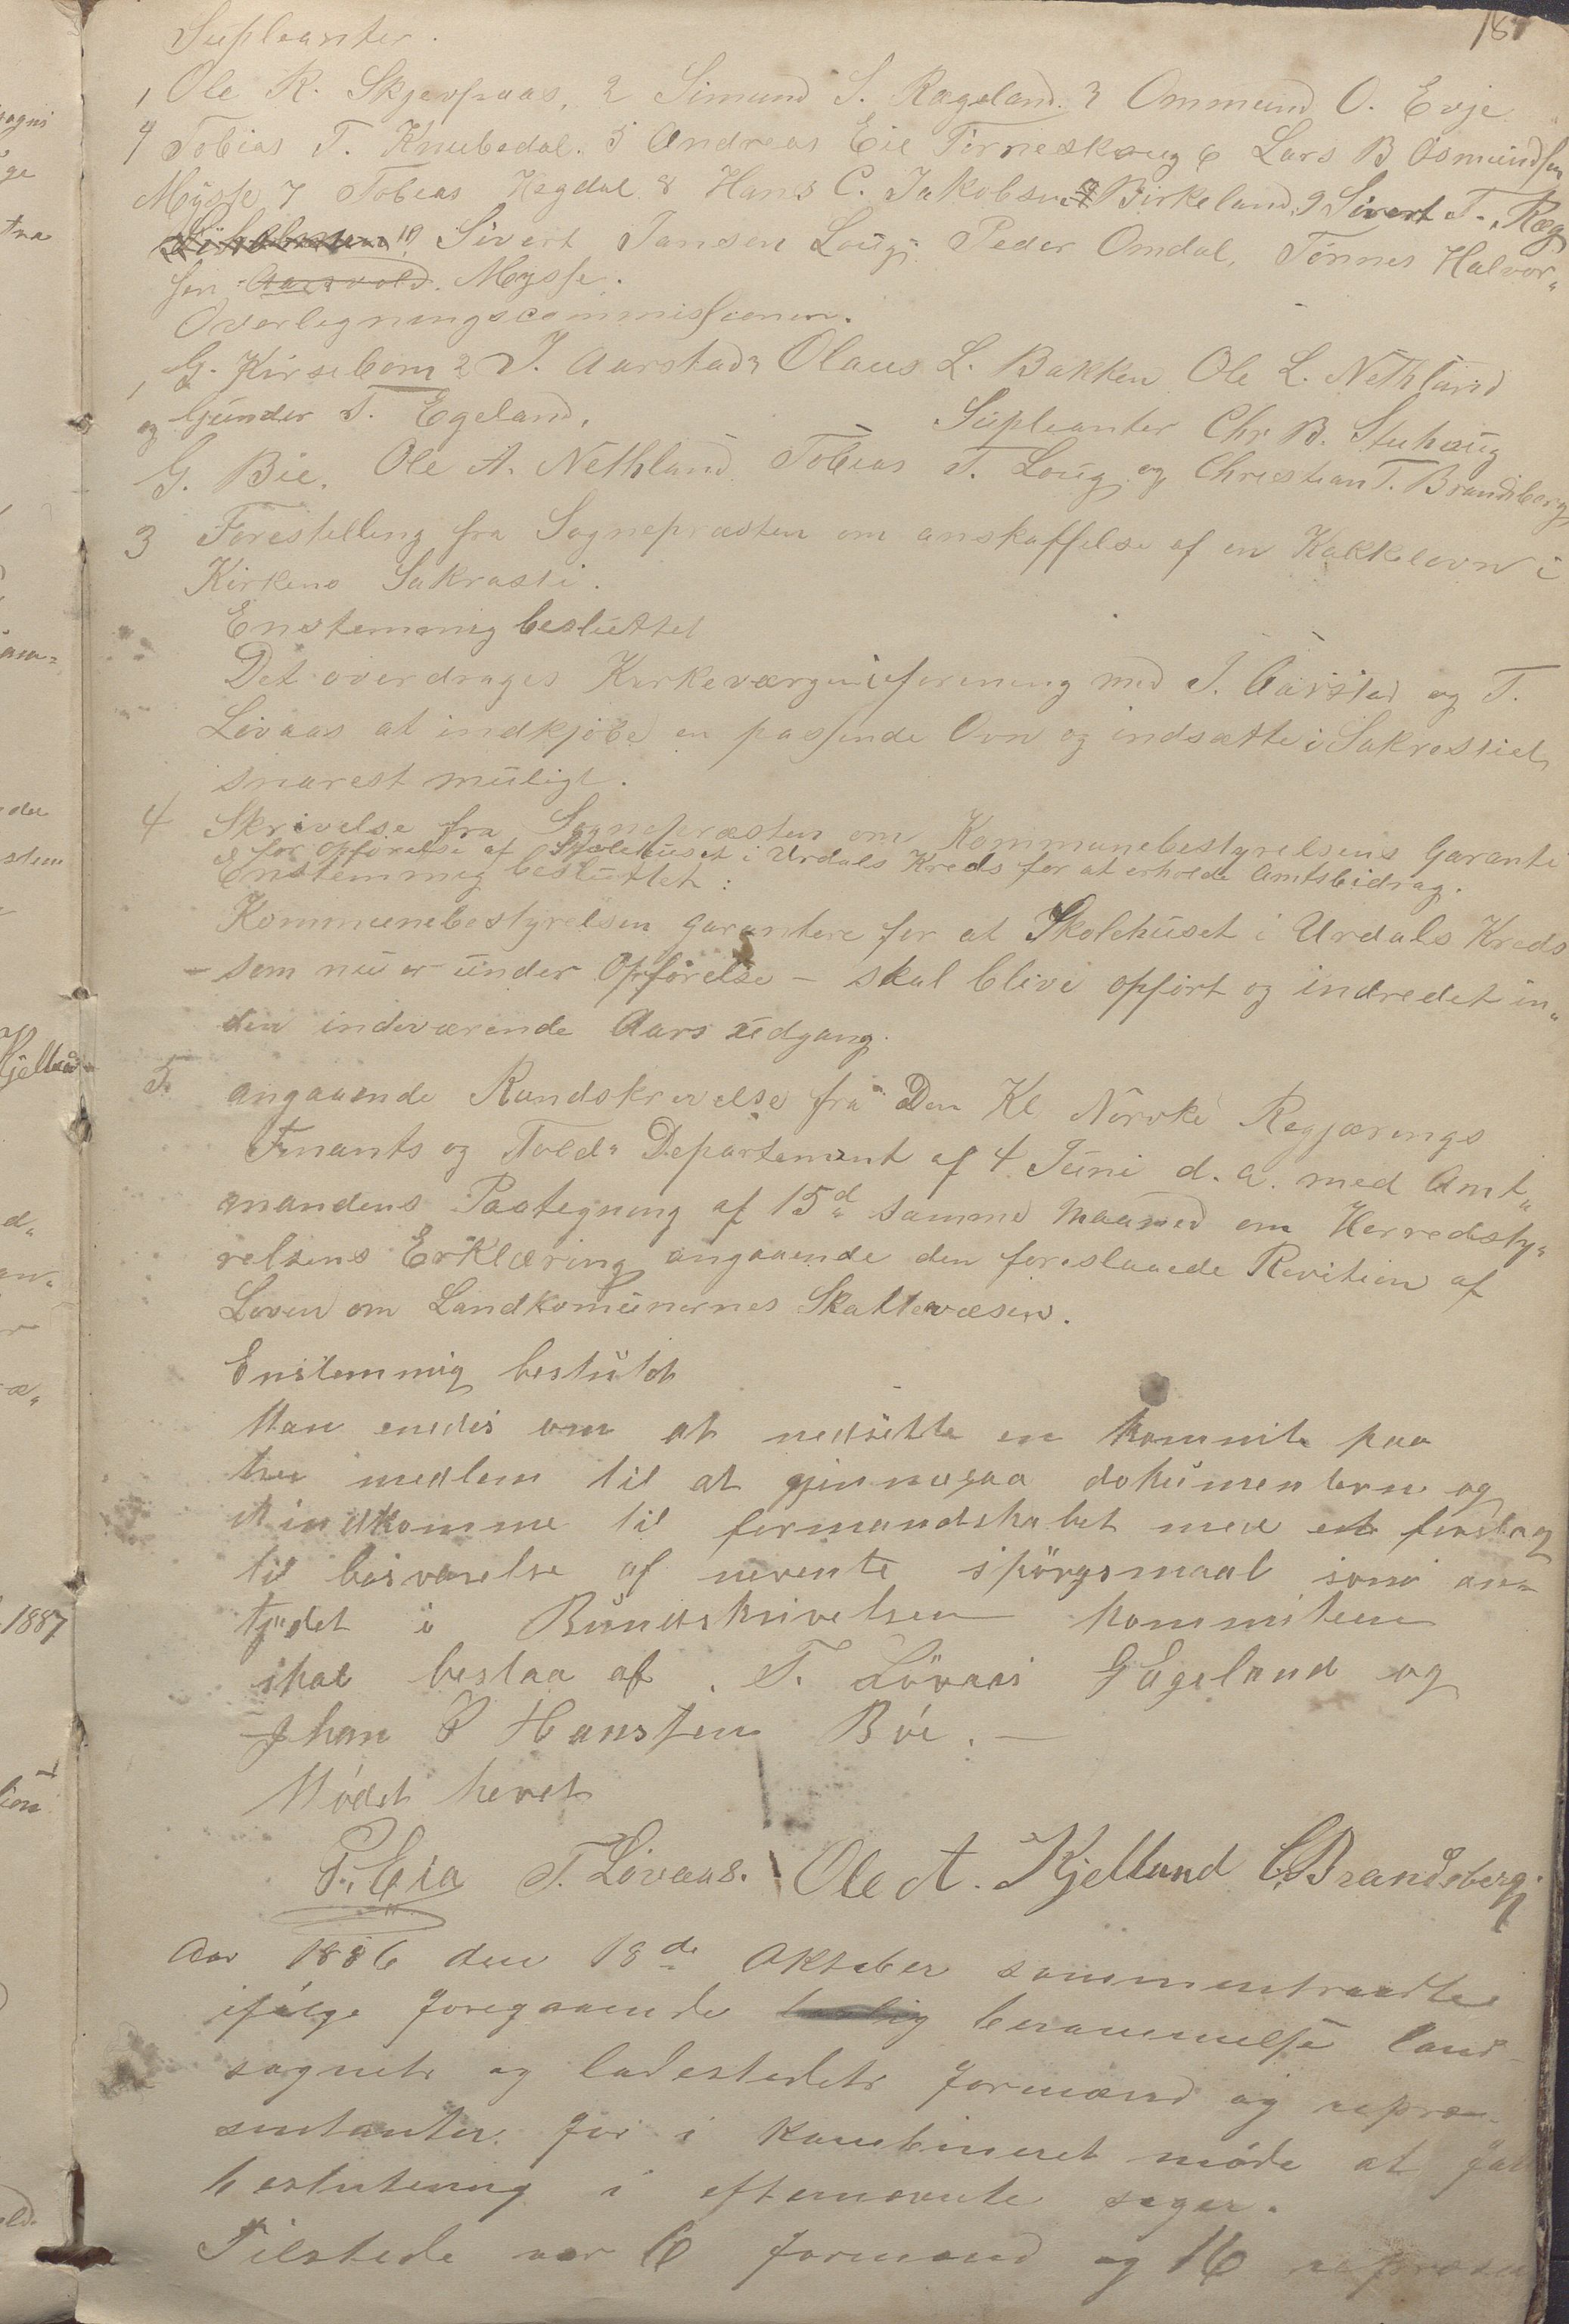 187
Supleanter.
1 Ole K. Skjævpaas, 2 Simund S. Rægeland. 3 Ommund O. Evje
4 Tobias T. Knubedal. 5 Andreas Eie Törneskoug 6 Lars B Osmundsen
Mysse 7 Tobias Hegdal 8 Hans C. Jakobsen Birkeland, 9 Sivert T. Ræg
10 Sivert Jansen Loug, Peder Omdal, Tönnes Halvor„
sen Aarevold. Mysse.
Overlegningscommissionen.
1 G. Kirsebom 2 J. Aarstad 3 Olaus L. Bakken Ole L. Nethland
og Gunder T. Egeland, Supleanter Chr B. Stuhaug
G. Bie, Ole A. Nethland Tobias T. Loug og Christian T. Brandsberg
3 Forestilling fra Sognepræsten om anskaffelse af en Kakkelovn i
Kirkens Sakrasti.
Enstemmig besluttet
Det overdrages Kirkeværgen i forening med J. Aarstad og T.
Lövaas at indkjöbe en passende Ovn og indsætte i Sakrastiet
snarest muligt.
4 Skrivelse fra Sognepræsten om Kommunebestyrelsens Garanti
for Opförelse af Skolehuset i Urdals Kreds for at erholde Amtsbidrag.
Enstemmig besluttet:
Kommunebestyrelsen garantere for at Skolehuset i Urdals Kreds
– som nu er under Opförelse – skal blive opfört og indredet in„
den indeværende Aars udgang.
5. angaaende Rundskrivelse fra Den Kl Norske Regjærings
Finants og Told„ Departement af 4 Juni d. a. med Amt„
mandens Paategning af 15d samme Maaned om Herredsty„
relsens Erklæring angaaende den foreslaaede Revition af
Loven om Landkomunernes Skattevæsen.
Enstemmig beslutet
Man enedes om at nedsætte en Kommite paa
tre medlem til at gjennegaa dokumentern og
indkomme til formandskabet med et forslag
til besvarelse af nevente spörgsmaal som an„
tydet i Rundskrivelsen Kommiteen
skal bestaa af T. Lövaas G Egeland og
Jhan P Hansten Böe. —
Mödet hevet
P. Eia T. Lövaas. Ole A. Kjelland C. Brandsberg.
Aar 1886 den 18de Oktober sammentraadte
ifölge foregaaende berammelse land
sognets og ladestedets formænd og repræ„
sentanter for i kombineret möde at fat
beslutning i efternævnte sager.
Tilstede var 6 formænd og 16 repræsen